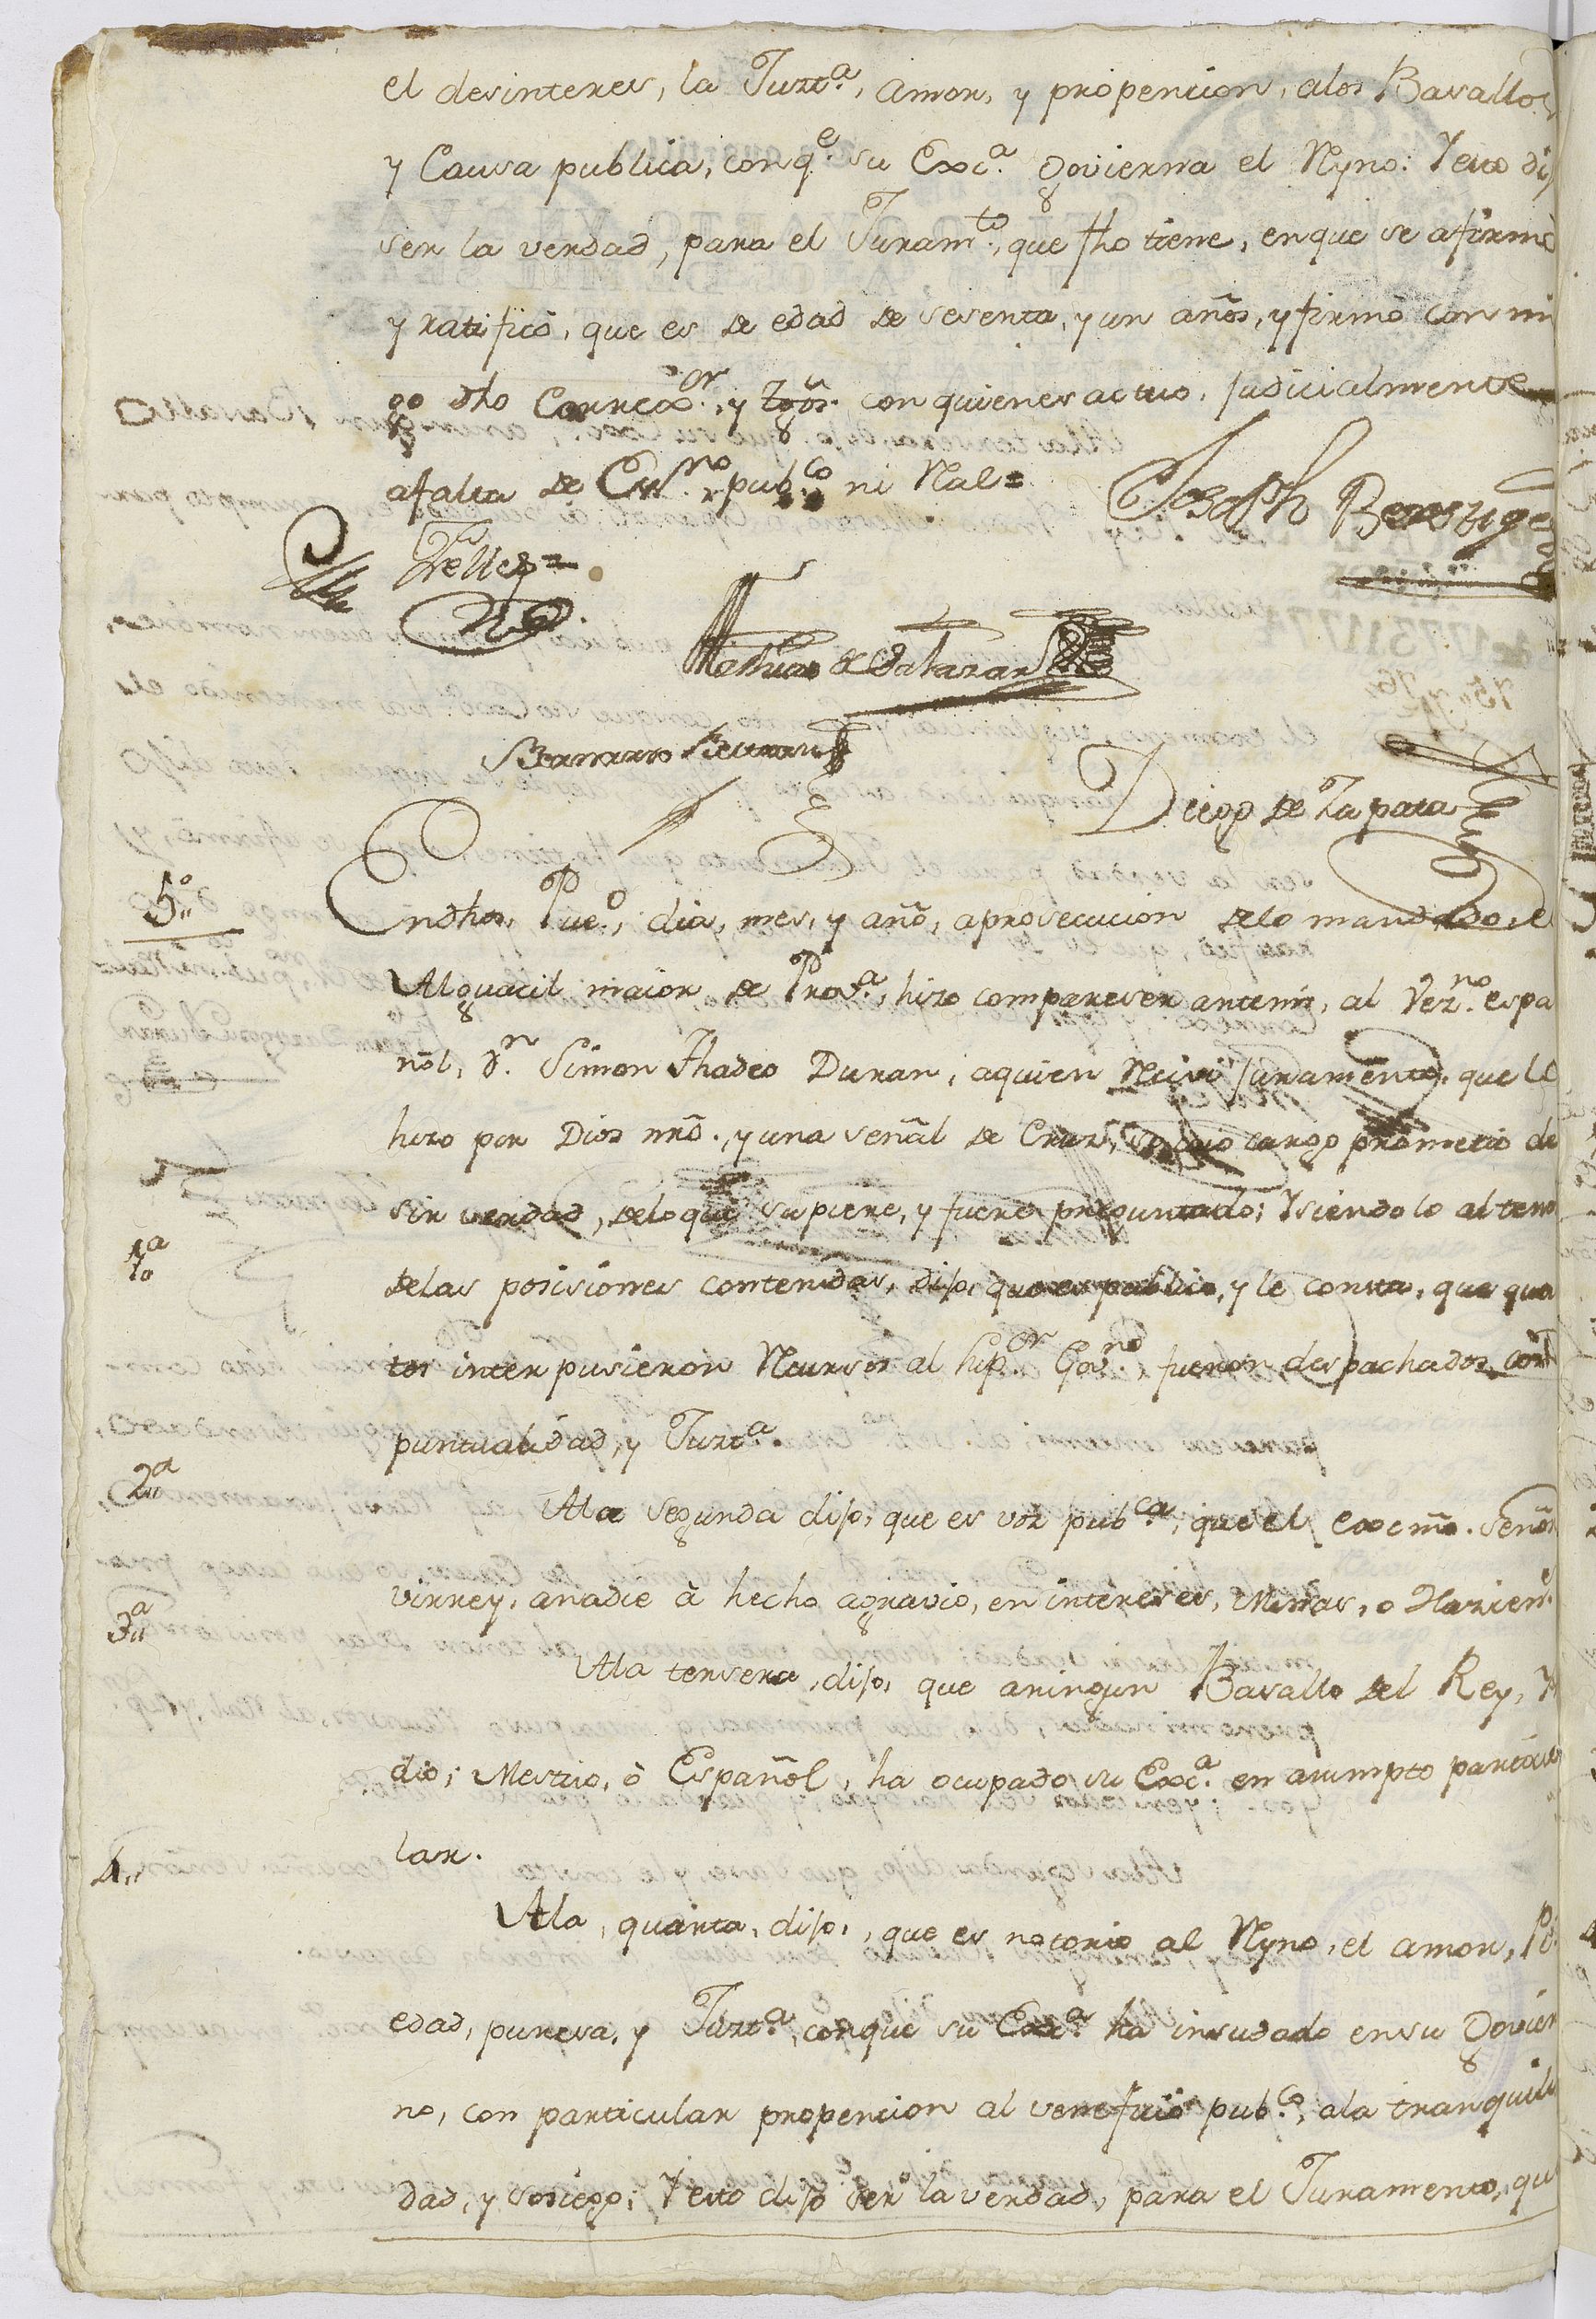 el desinteres, la Just.ª, amor, y propencion, alos Basallos
y Causa publica, con q.e su Exc.ª govierna el Ryno: Y esto dijo
ser la verdad, para el Juram.to, que fho tiene, en que se afirmó
y ratificó, que es de edad de sesenta, y un años, y firmó con mi
go dho Correx.or, y tgõs. con quienes actuo, judicialmente
afalta de Ess.no pub.co ni Real=
Joseph
Tellez=
de Salazar
Bernardo
Diego de Zapata
5º
En dho, Pue.º, dia, mes, y año, aprosecucion delo mandado, el
Alguacil maior de Prov.ª, hizo compareser antemi, al Vez.no espa
ñol, d.n Simon Thadeo Duran, aquien Reciví juramento, que lo
hizo por Dios nrõ., y una señal de Cruz, so cuio cargo prometio de
sir verdad, delo que supiere, y fuere preguntado; Y siendolo al teno
1ª
delas posisiones contenidas, dijo, que es publico, y le consta, que qua
tos interpusieron Recursos al Sup.or Gov.no, fueron despachados, con
puntualidad, y Just.ª
2ª
Ala segunda dijo, que es voz pub.ca, que el excmõ. Señor
virrey, anadie à hecho agravio, en intereses, Minas, o Hazien.
3ª
Ala tersera, dijo, que aningun Basallo del Rey, Yn
dio; Mestizo, ò Español, ha ocupado su Exc.ª en asumpto particu
lar.
4.
Ala, quarta, dijo, que es notorio al Ryno, el amor, Pi
edad, puresa, y Just.ª, con que su Exc.ª ha insudado en su Govier
no, con particular propencion al veneficio pub.co, ala tranquili
dad, y sosiego; Y esto dijo ser la verdad, para el Juramento, que